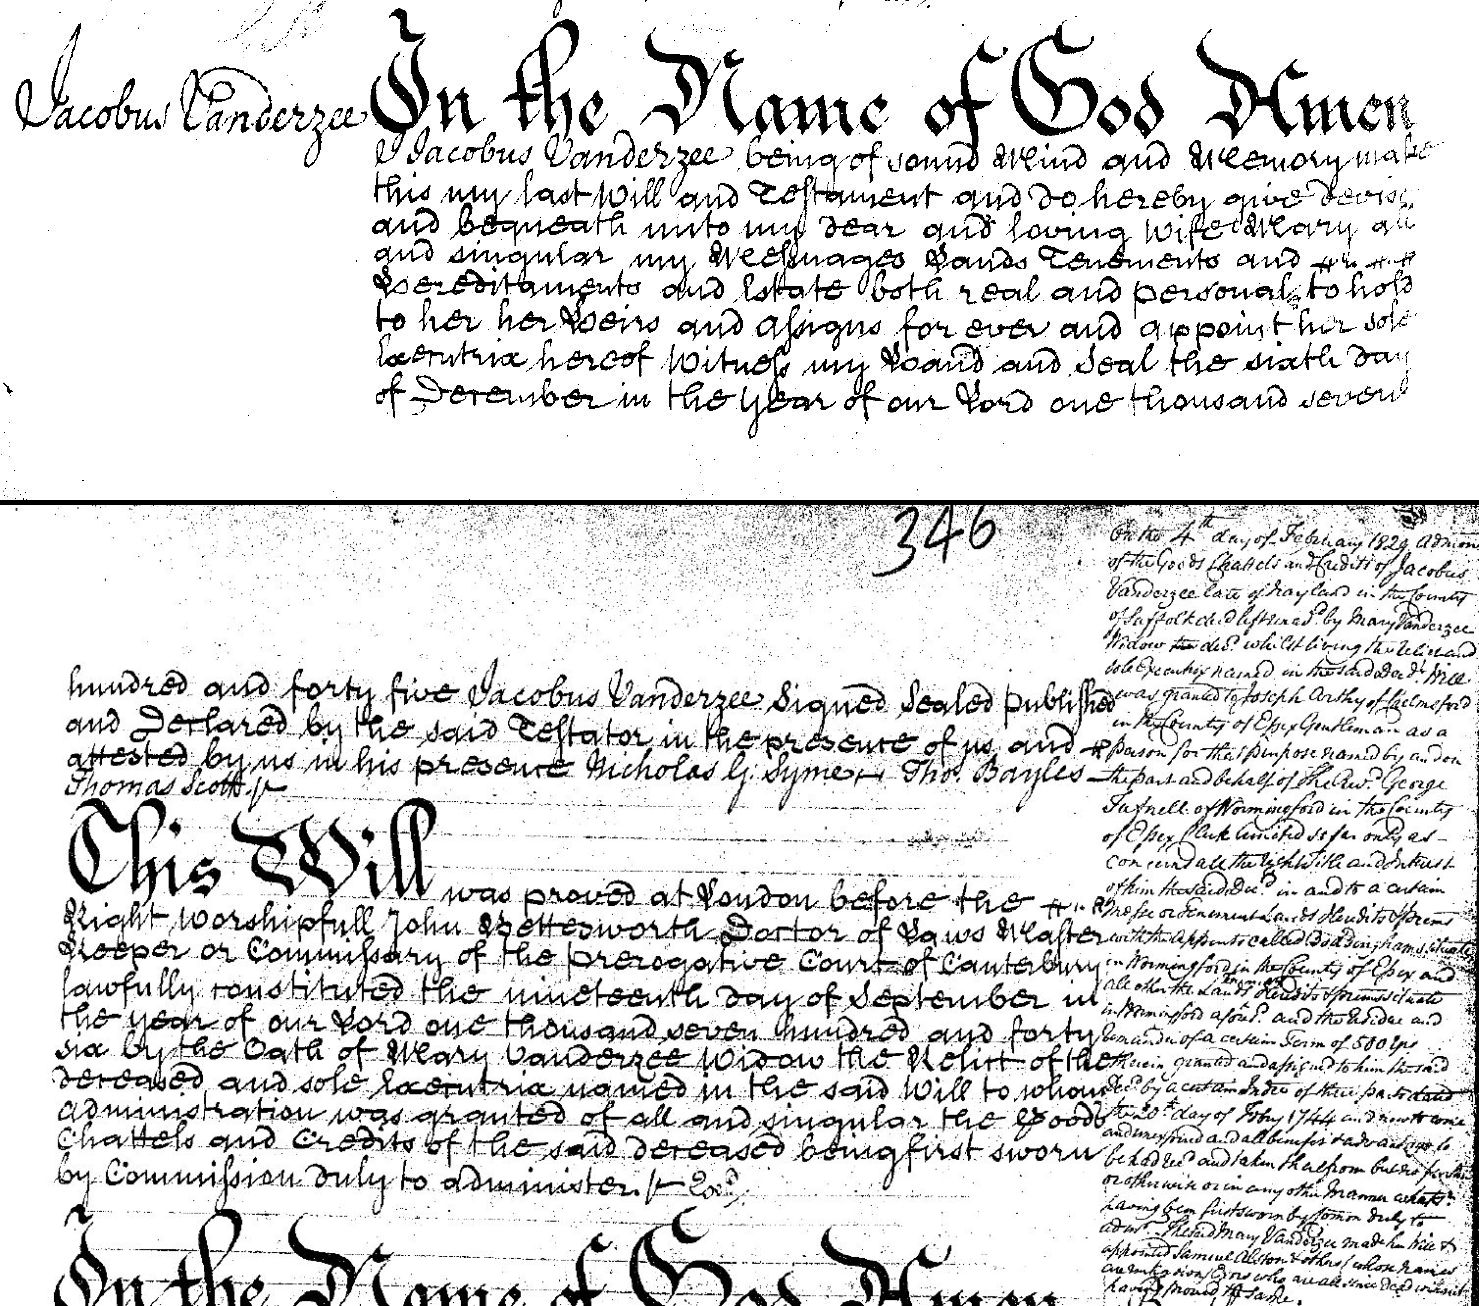 Jacobus Vanderzee
In the Name of God Amen
I Jacobus Vanderzee being of sound Mind and Memory make
this my last Will and Testament and do hereby give devise
and bequeath unto my dear and loving Wife Mary all
and singular my Messuages Lands Tenements and
Hereditaments and Estate both real and personal to hold
to her her Heirs and Assigns for ever and appoint her sole
Executrix hereof Witness my Hand and Seal the sixth day
of December in the year of our Lord one thousand seven
346
hundred and forty five Jacobus Vanderzee Signed Sealed published
and Declared by the said Testator in the presence of us and
attested by us in his presence Nicholas G. Syme Tho.s Bayles
Thomas Scott
This Will was proved at London before the
Right Worshipfull John Bettesworth Doctor of Laws Master
Keeper or Commissary of the prerogative Court of Canterbury
lawfully constituted the nineteenth day of September in
the year of our Lord one thousand seven hundred and forty
six by the Oath of Mary Vanderzee Widow the Relict of the
deceased and sole Executrix named in the said Will to whom
administration was granted of all and singular the Goods
Chattels and Credits of the said deceased being first sworn
by Commission duly to administer.
On the 4th day of February 1829 Admon
of the Goods Chattels and Credits of Jacobus
Vanderzee late of Nayland in the County
of Suffolk dec'd left unad'd by Mary Vanderzee
Widow the dec'd whilst living the Relict and
sole Executrix named in the said dec'd's Will
was granted to Joseph Arthy of Chelmsford
in the County of Essex Gentleman as a
person for this purpose named by and on
the part and behalf of the Rev'd George
Tufnell of Wormingford in the County
of Essex Clerk limited so far only as
concerns all the right title and interest
of him the said dec'd in and to a certain
Mess'e or Tenement Lands Heredits & prems
with the appurts called Boddinghams situate
in Wormingford in the County of Essex and
all other the Lands Heredits & prems situate
in Wormingford afores'd and the residue and
remainder of a certain term of 500 yrs
therein granted and assigned to him the said
dec'd by a certain Indre of three parts dated
the 20th day of Febry 1744 and now to come
and unexpired and all benefit & advantage to
be had rec'd and taken therefrom but no further
or otherwise or in any other manner whats'r
having been first sworn by Comon duly to
adm'r. The said Mary Vanderzee made her Will &
appointed Samuel Alston & others whose names
are
having proved the same.
In the Name of God Amen